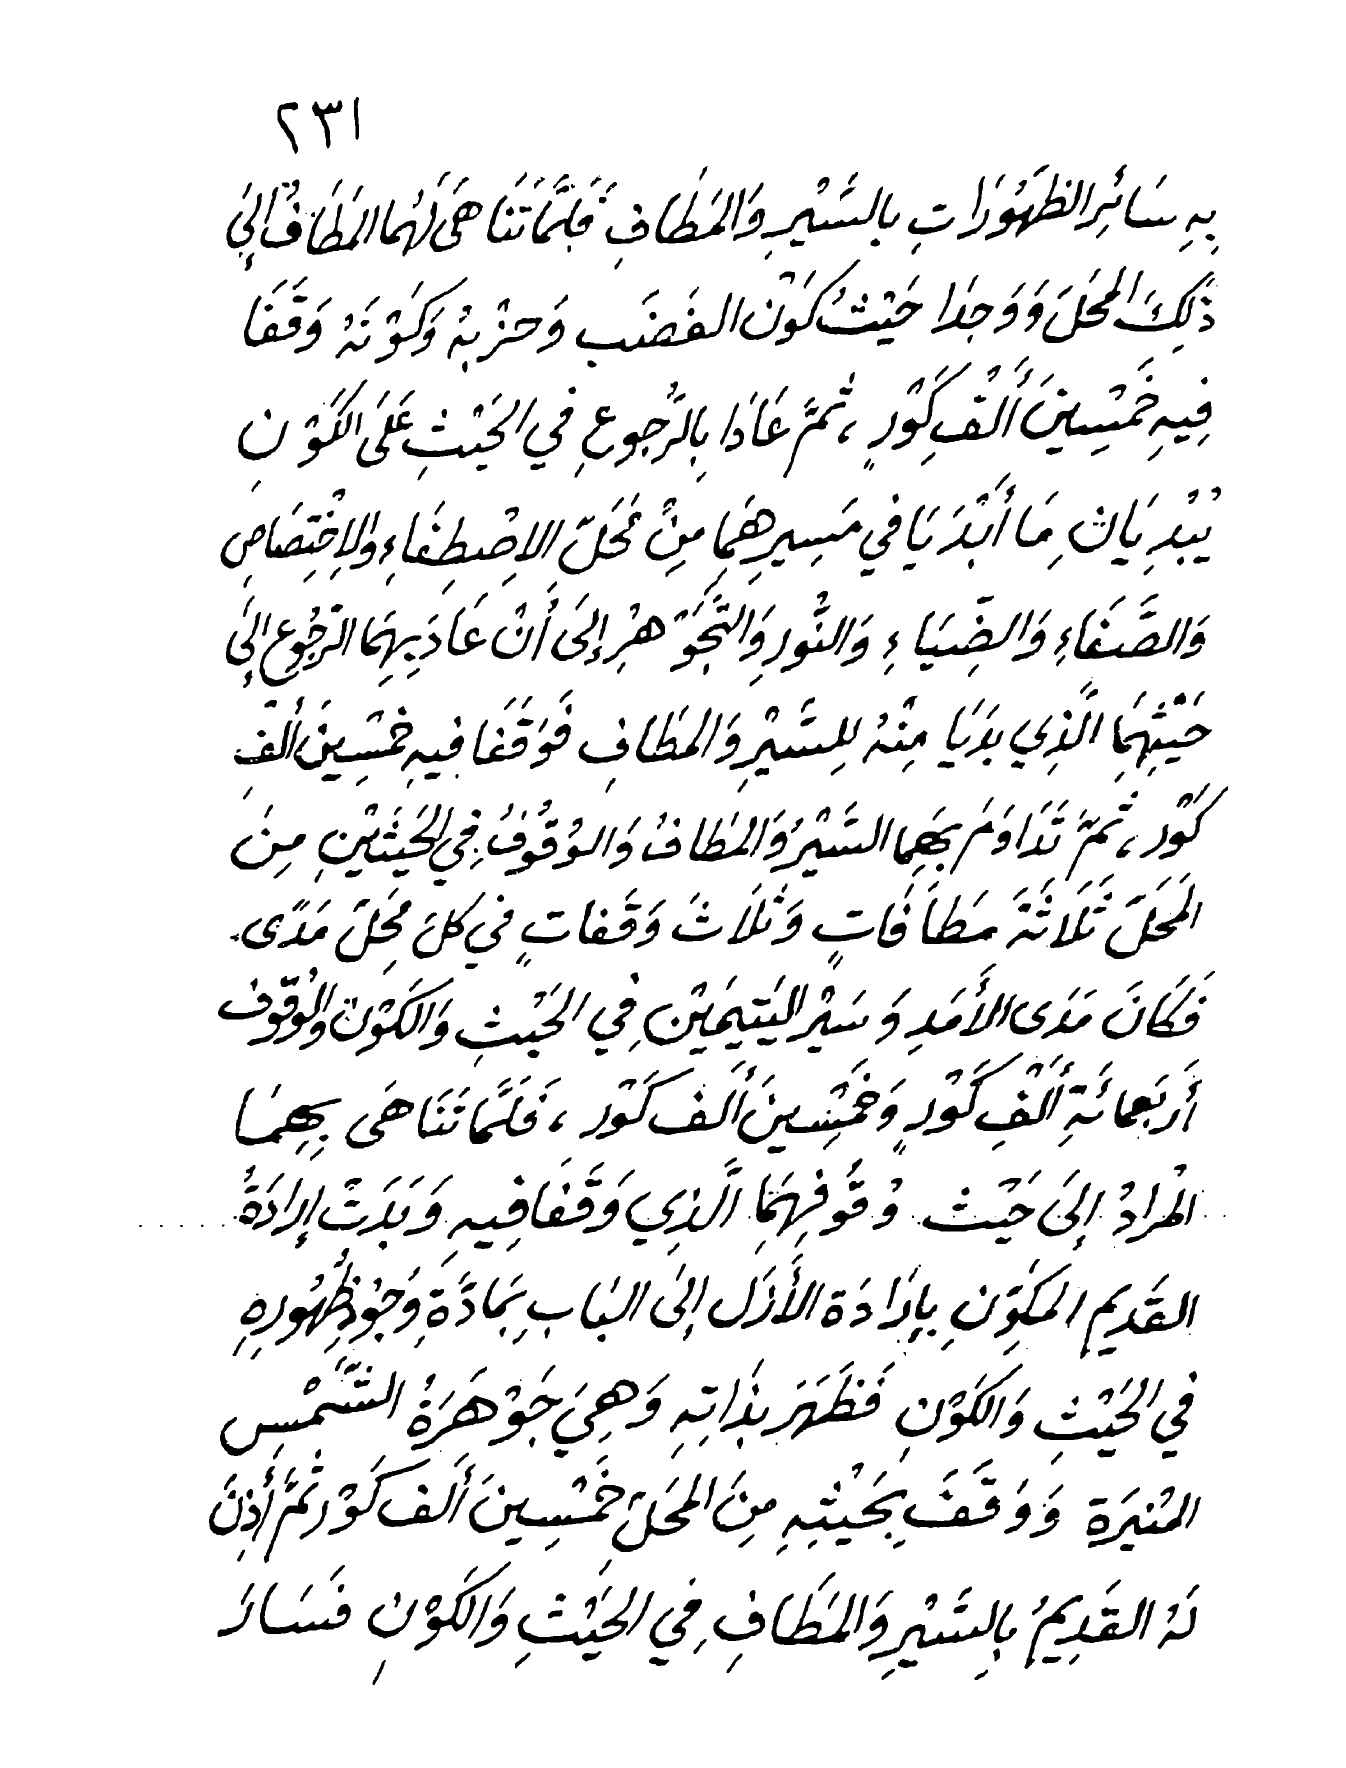 ٢٣١
بِهِ سَائِرِ الظُّهُورَاتِ بِالسَّيْرِ وَالمَطَافِ فَلَمَّا تَنَاهَى لَهُمَا المَطَافُ إِلَى
ذَلِكَ المَحَلَ وَوَجَدَا حَيْثُ كَوْن الغَضَب وَحِزْبِهُ وَكَوْنَهُ وَقَفَا
فِيهِ خَمْسِينَ أَلْفَ كَوْرٍ ، ثُمَّ عَادَا بِالرُّجوعِ فِي الحَيْثِ عَلَى الكَوْنِ
يُبْدِيَانِ مَا أَبْدَيَا في مَسِيرِهِمَا مِنْ مَحَلّ الاِصْطِفَاءِ وَالاِخْتِصَاصِ
وَالصَّفَاءِ وَالضِّيَاءِ وَالنُّورِ وَالتَّجَوْهُرِ إِلَى أَنْ عَادَ بِهِمَا الرّجُوع إِلَى
حَيْثِهِمَا الَّذِي بَدَيَا مِنْهُ لِلسَّيْرِ وَالمَطَافِ فَوَقَفَا فِيهِ خَمْسِينَ أَلْفَ
كَوْر ، ثُمَّ تَدَاوَمَ بِهِمَا السَّيْرُ وَالمَطَافُ وَالوُقُوفُ فِي الحَيْثَيْنِ مِنَ
المَحَلّ ثَلَاثَةَ مَطَافَاتٍ وَثَلَاثَ وَقَفَاتٍ في كلّ مَحَلّ مَدًى.
فَكَانَ مَدَى الأَمَدِ وَسَيْر اليَتِيمَيْنِ فِي الحَيْثِ وَالكَوْنِ وَالوُقُوف
أَربَعمائَةِ أَلْفِ كَوْرٍ وَخَمْسِينَ أَلْف كَوْر ، فَلَمَّا تَنَاهَى بِهِمَا
المُرادُ إِلَى حَيْث وُقُوفِهِمَا الَّذِي وَقَفَا فِيهِ وَبَدَتْ إِرادَةُ
القَدِيمِ المكَوِّنِ بِإِرَادَة الأَزَل إِلى البَابِ بِمَادَّةِ وَجُودِ ظُهُورِهِ
في الحَيْثِ وَالكَوْنِ فَظَهَرَ بِذَاتِهِ وَهِيَ جَوْهَرَةُ الشَّمْسِ
المُنِيرَة وَوَقَفَ بِحَيْثِهِ مِنَ المَحَلّ خَمْسِينَ أَلف كَوْر ثُمَّ أَذِنَ
لَهُ القَدِيمُ بِالسَّيْرِ وَالمَطَافِ فِي الحَيْثِ وَالكَوْنِ فَسَارَ